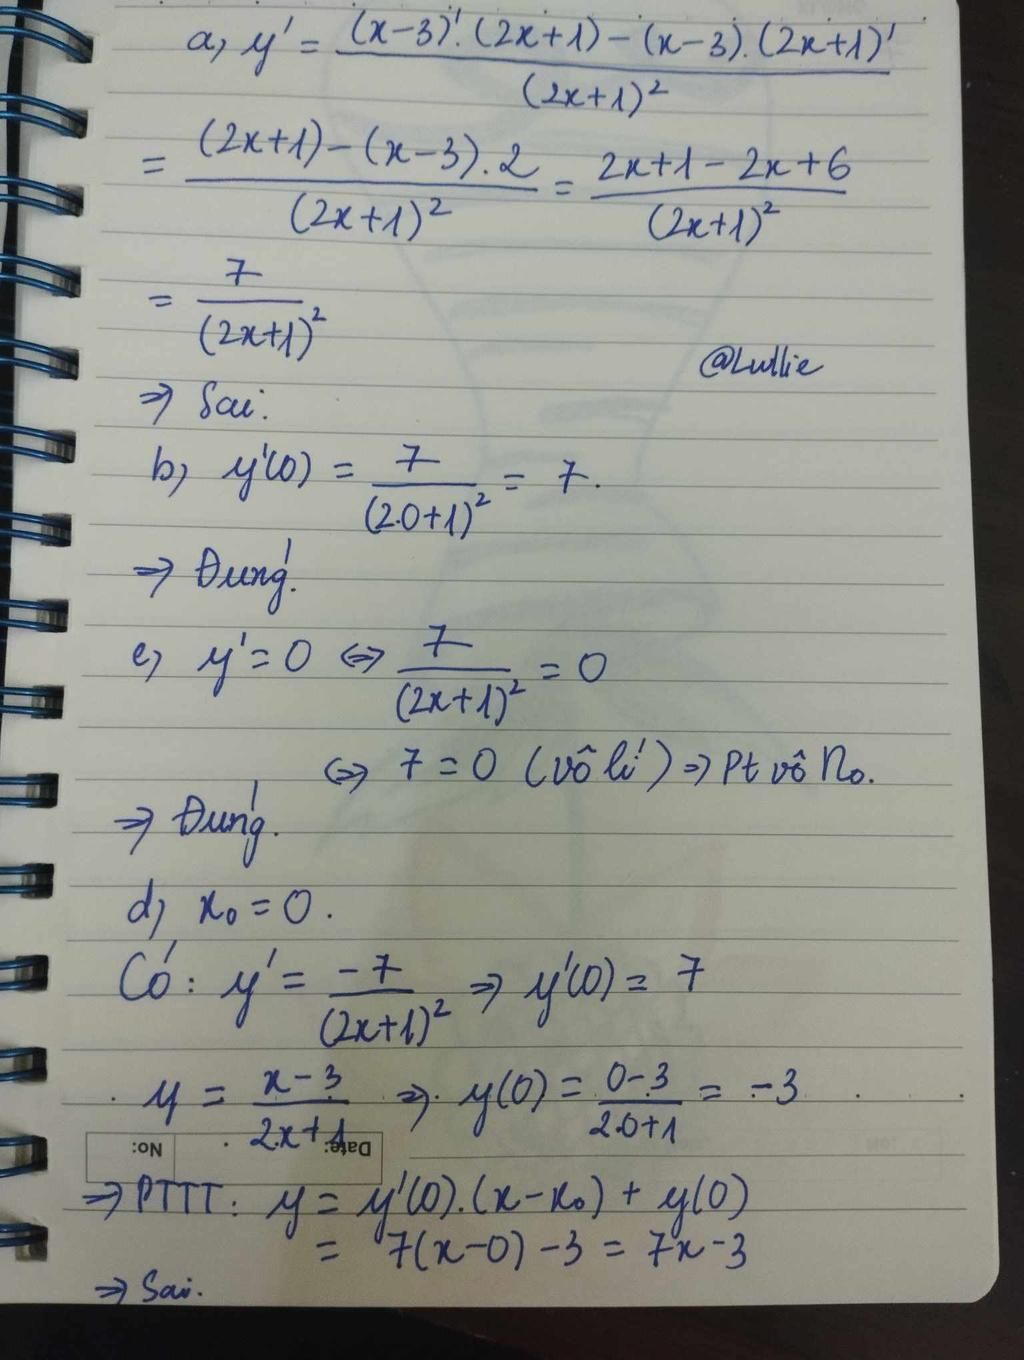 a, y' = (x-3)'.(2x+1) - (x-3).(2x+1)' / (2x+1)²
= (2x+1) - (x-3).2 / (2x+1)² = 2x+1-2x+6 / (2x+1)²
= 7 / (2x+1)²
@Lullie
=> Sai.
b, y'(0) = 7 / (2.0+1)² = 7.
=> Đúng.
c, y' = 0 <=> 7 / (2x+1)² = 0
<=> 7 = 0 (vô lí) => Pt vô n₀.
=> Đúng.
d, x₀ = 0.
Có: y' = -7 / (2x+1)² => y'(0) = 7
y = x-3 / 2x+1 => y(0) = 0-3 / 2.0+1 = -3
No: Date:
=> PTTT: y = y'(0).(x-x₀) + y(0)
= 7(x-0) - 3 = 7x-3
=> Sai.